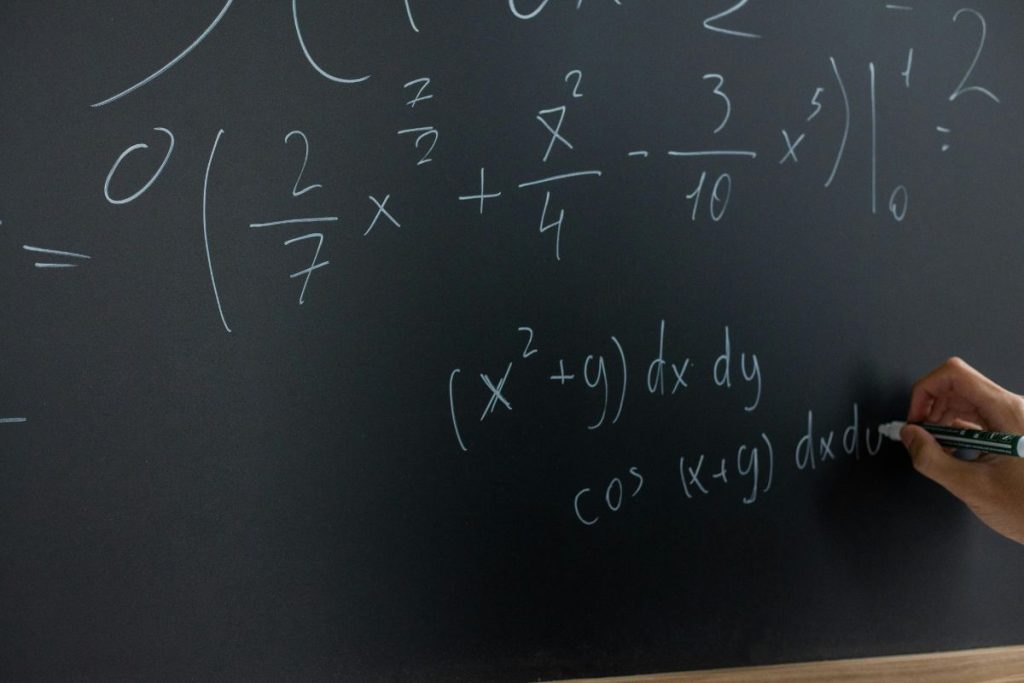 2 2
= 0 ( 2/7 x^(7/2) + x^2/4 - 3/10 x^5 ) |_0^1 =
(x^2 + y) dx dy
cos (x+y) dx dy